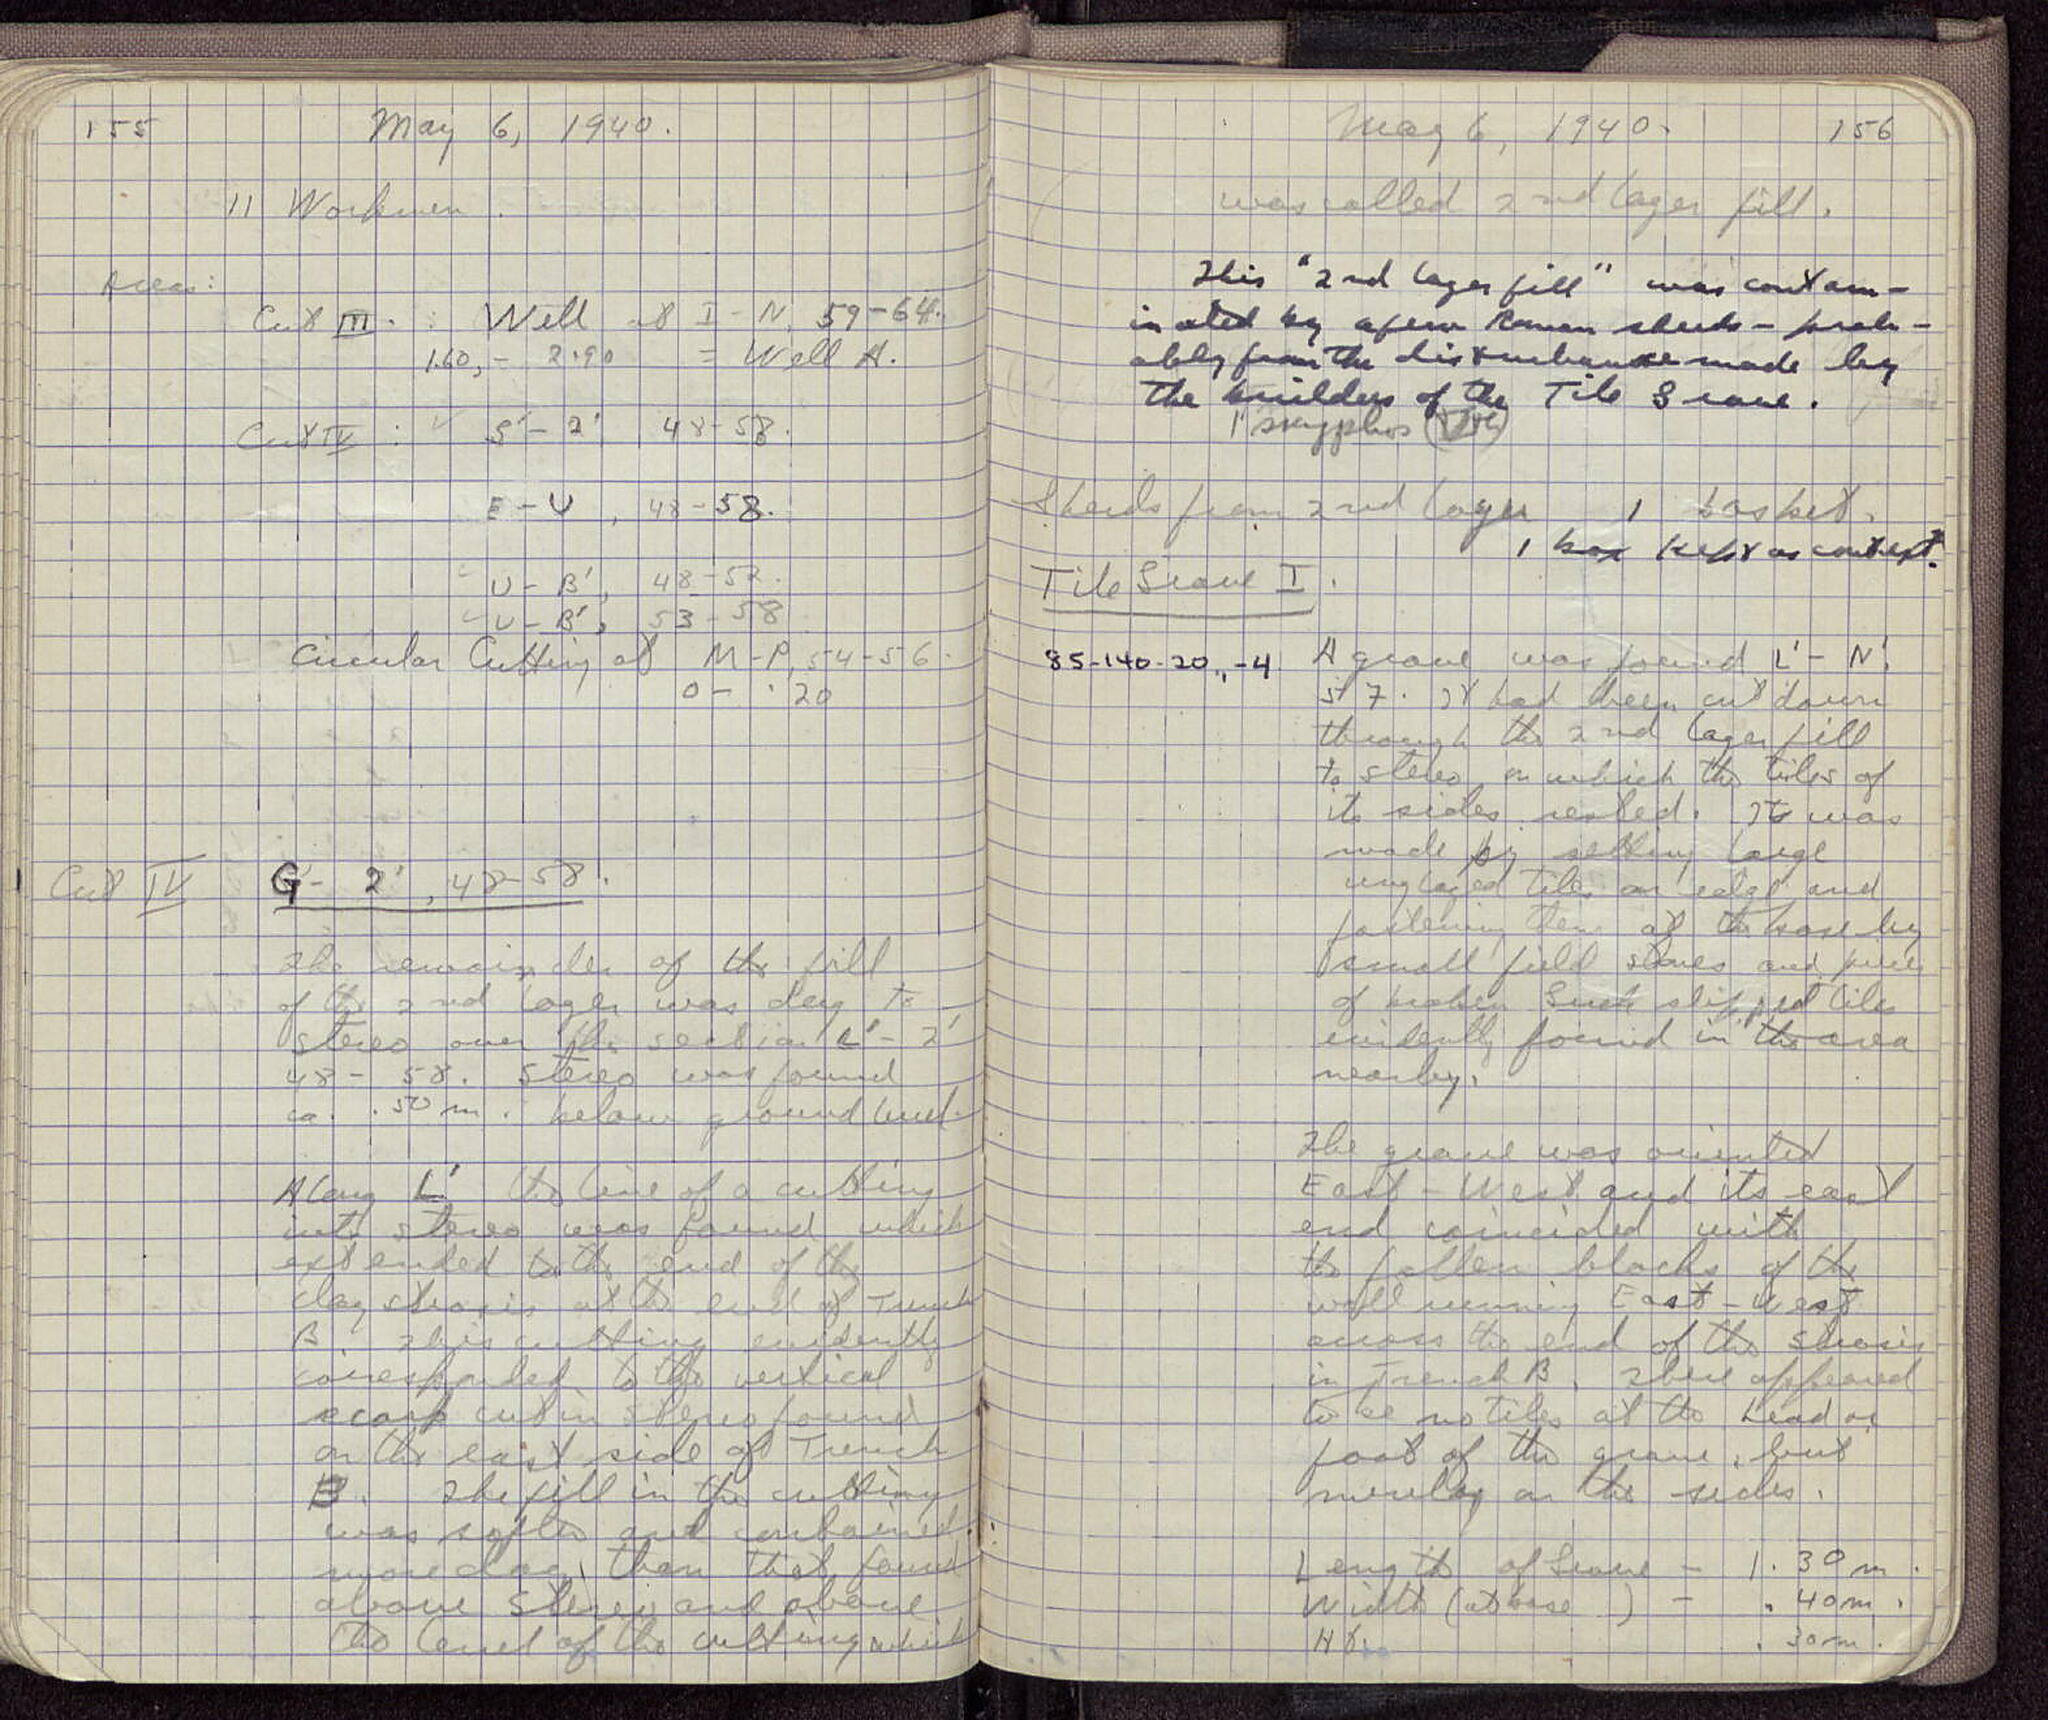 155 May 6, 1940.
11 Workmen.
Areas:
Cut III. : Well at I-N, 59-64.
1.60,- 2.90 = Well A.
Cut IV : S'-2' 48-58.
E-U, 48-58.
U-B', 48-52.
U-B', 53-58
Circular Cutting at M-P, 54-56.
0- .20
Cut IV G'- 2', 48-58.
The remainder of the fill
of the 2nd layer was dug to
stereo over the section L'-2'
48-58. Stereo was found
ca. .50 m. below ground level.
Along L' the line of a cutting
into stereo was found which
extended to the end of the
clay strosis at the end of Trench
B. This cutting evidently
corresponded to the vertical
scarp cut in stereo found
on the east side of Trench
B. The fill in the cutting
was softer and contained
more clay than that found
above stereo and above
the level of the cutting which
May 6, 1940. 156
was called 2nd layer fill.
This "2nd layer fill" was contam-
inated by a few Roman sherds - prob-
ably from the disturbance made by
the builders of the Tile Grave.
1 skyphos
Sherds from 2nd layer 1 basket.
1 box kept as context.
Tile Grave I.
85-140-20, -4 A grave was found L'-N'
57. It had been cut down
through the 2nd layer fill
to stereo, on which the tiles of
its sides rested. It was
made by setting large
unglazed tiles on edge and
fastening them at the base by
small field stones and pieces
of broken Greek slipped tiles
evidently found in the area
nearby.
The grave was oriented
East-West and its east
end coincided with
the fallen blocks of the
wall running East-West
across the end of the strosis
in Trench B. There appeared
to be no tiles at the head or
foot of the grave, but
merely on the sides.
Length of Grave - 1.30 m.
Width (at base) - .40 m.
Ht. .30 m.